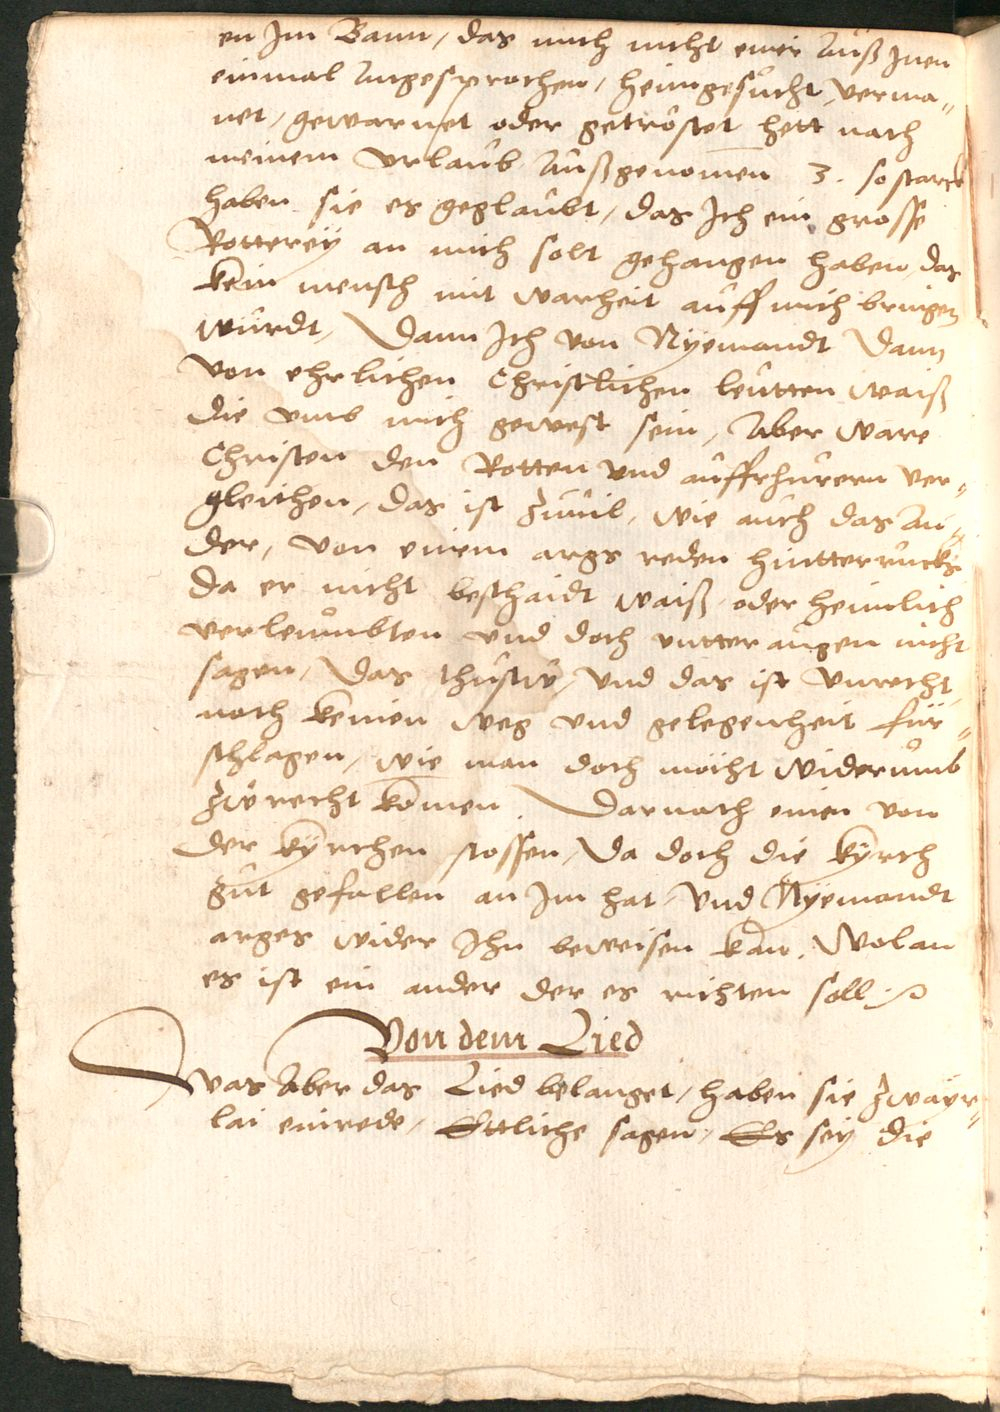 en Im Bann / das mich nicht einer Auß Inen
einmal Angesprochen / heimgesůcht, verma„
net / gewarnet oder getröstet hett nach
meinem Vrlaub Außgenomen 3. so starck
haben sie es geglaubt / das Ich ein grosse
Rotterey an mich solt gehangen haben, das
kein mensch mit warheit auff mich bringen
wurdt, Dann Ich von Nyemandt dann
von ehrlichen Christlichen leutten waiß
die vmb mich gewest sein, Aber ware
Christen den Rotten vnd auffrhurern ver„
gleichen, das ist Zuuil, wie auch das An„
der, von einem args reden hintterrucks
da er nicht beschaidt waiß, oder heimlich
verleumbten vnd doch vntter augen nicht
sagen, Das thustu, vnd das ist Vnrecht,
noch keinen weg vnd gelegenheit für„
schlagen, wie man doch möcht widerumb
Zu recht komen. Darnach einen von
der kyrchen stossen, Da doch die kyrch
gut gefallen an Im hat, Vnd Nyemandt
arges wider Ihn beweisen kan. Wolan
es ist ein ander der es richten soll
Von dem Lied
Was Aber das Lied belanget, haben sie Zwayr„
lai einrede, Ettliche sagen, Es sey die